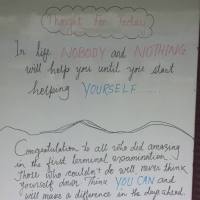 Thought For Today
In life NOBODY and NOTHING
will help you until you start
helping YOURSELF .....
Congratulation to all who did amazing
in the first terminal examination.
Those who couldn't do well, never think
yourself down. Think YOU CAN and
will make a difference in the days ahead.